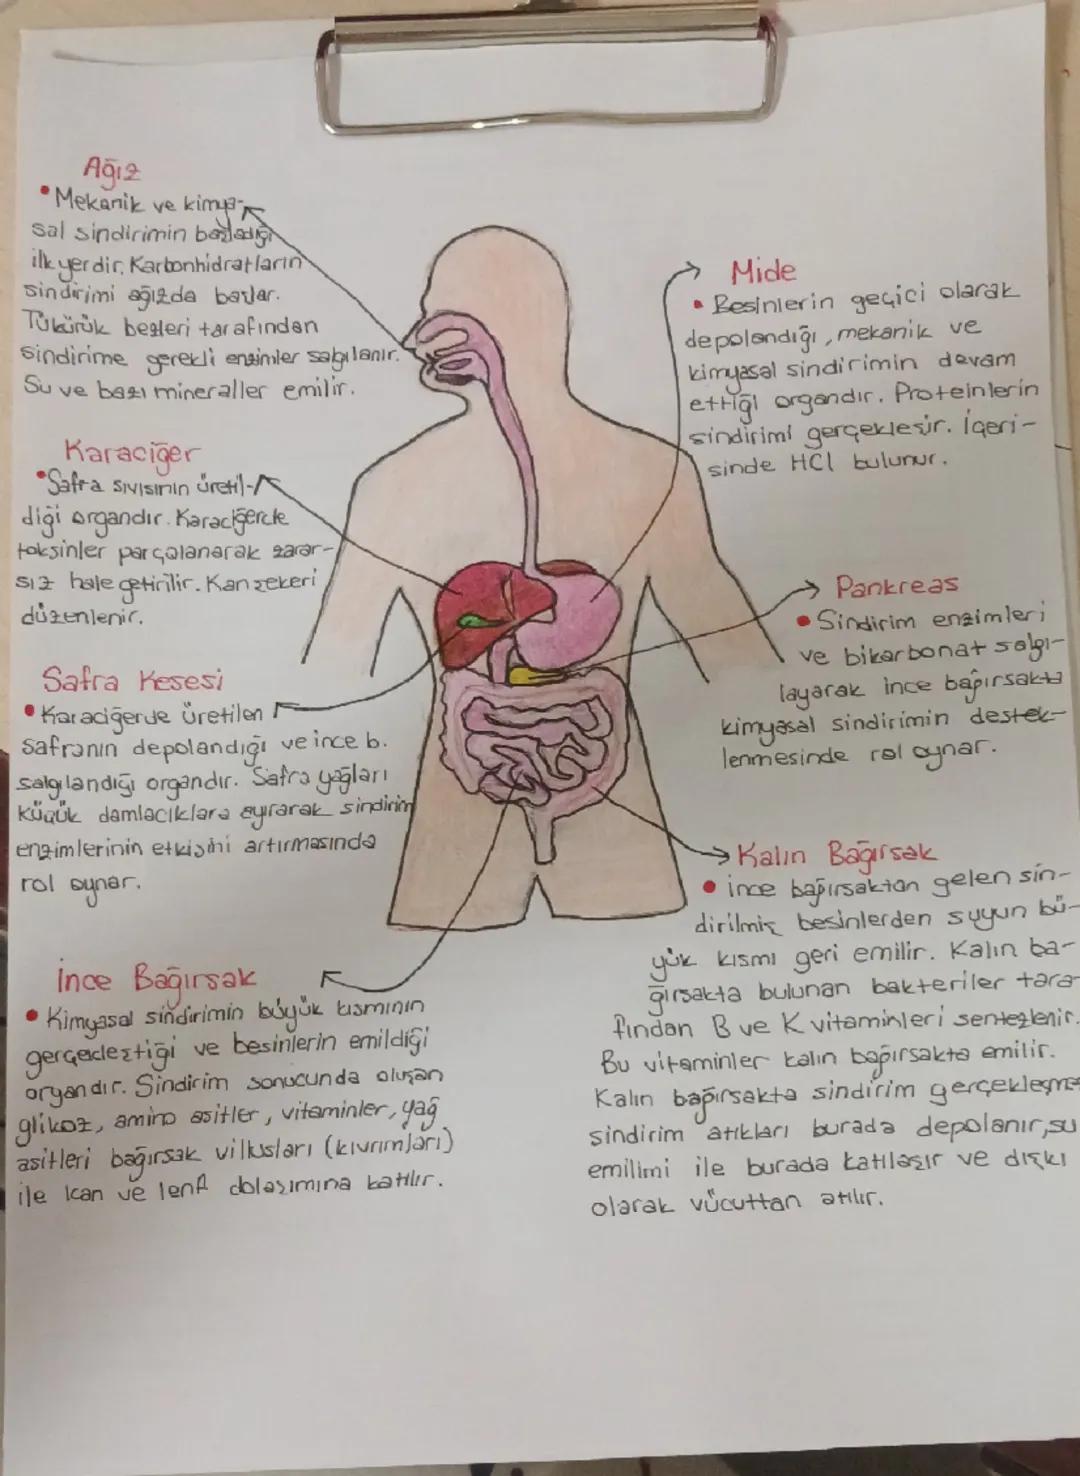 Ağız
• Mekanik ve kimya-
sal sindirimin başladığı
ilk yerdir. Karbonhidratların
sindirimi ağızda başlar.
Tükürük bezleri tarafından
sindirime gerekli enzimler salgılanır.
Su ve bazı mineraller emilir.
Karaciğer
• Safra sıvısının üretil-
diği organdır. Karaciğerde
toksinler parçalanarak zarar-
sız hale getirilir. Kan şekeri
düzenlenir.
Safra Kesesi
• Karaciğerde üretilen
safranın depolandığı ve ince b.
salgılandığı organdır. Safra yağları
küçük damlacıklara ayırarak sindirim
enzimlerinin etkisini artırmasında
rol oynar.
İnce Bağırsak
• Kimyasal sindirimin büyük kısmının
gerçekleştiği ve besinlerin emildiği
organdır. Sindirim sonucunda oluşan
glikoz, amino asitler, vitaminler, yağ
asitleri bağırsak villusları (kıvrımları)
ile kan ve lenf dolaşımına katılır.
Mide
• Besinlerin geçici olarak
depolandığı, mekanik ve
kimyasal sindirimin devam
ettiği organdır. Proteinlerin
sindirimi gerçekleşir. İçeri-
sinde HCl bulunur.
Pankreas
• Sindirim enzimleri
ve bikarbonat salgı-
layarak ince bağırsakta
kimyasal sindirimin destek-
lenmesinde rol oynar.
Kalın Bağırsak
• ince bağırsaktan gelen sin-
dirilmiş besinlerden suyun bü-
yük kısmı geri emilir. Kalın ba-
ğırsakta bulunan bakteriler tara-
fından B ve K vitaminleri sentezlenir.
Bu vitaminler kalın bağırsakta emilir.
Kalın bağırsakta sindirim gerçekleşmez
sindirim atıkları burada depolanır, su
emilimi ile burada katılaşır ve dışkı
olarak vücuttan atılır.